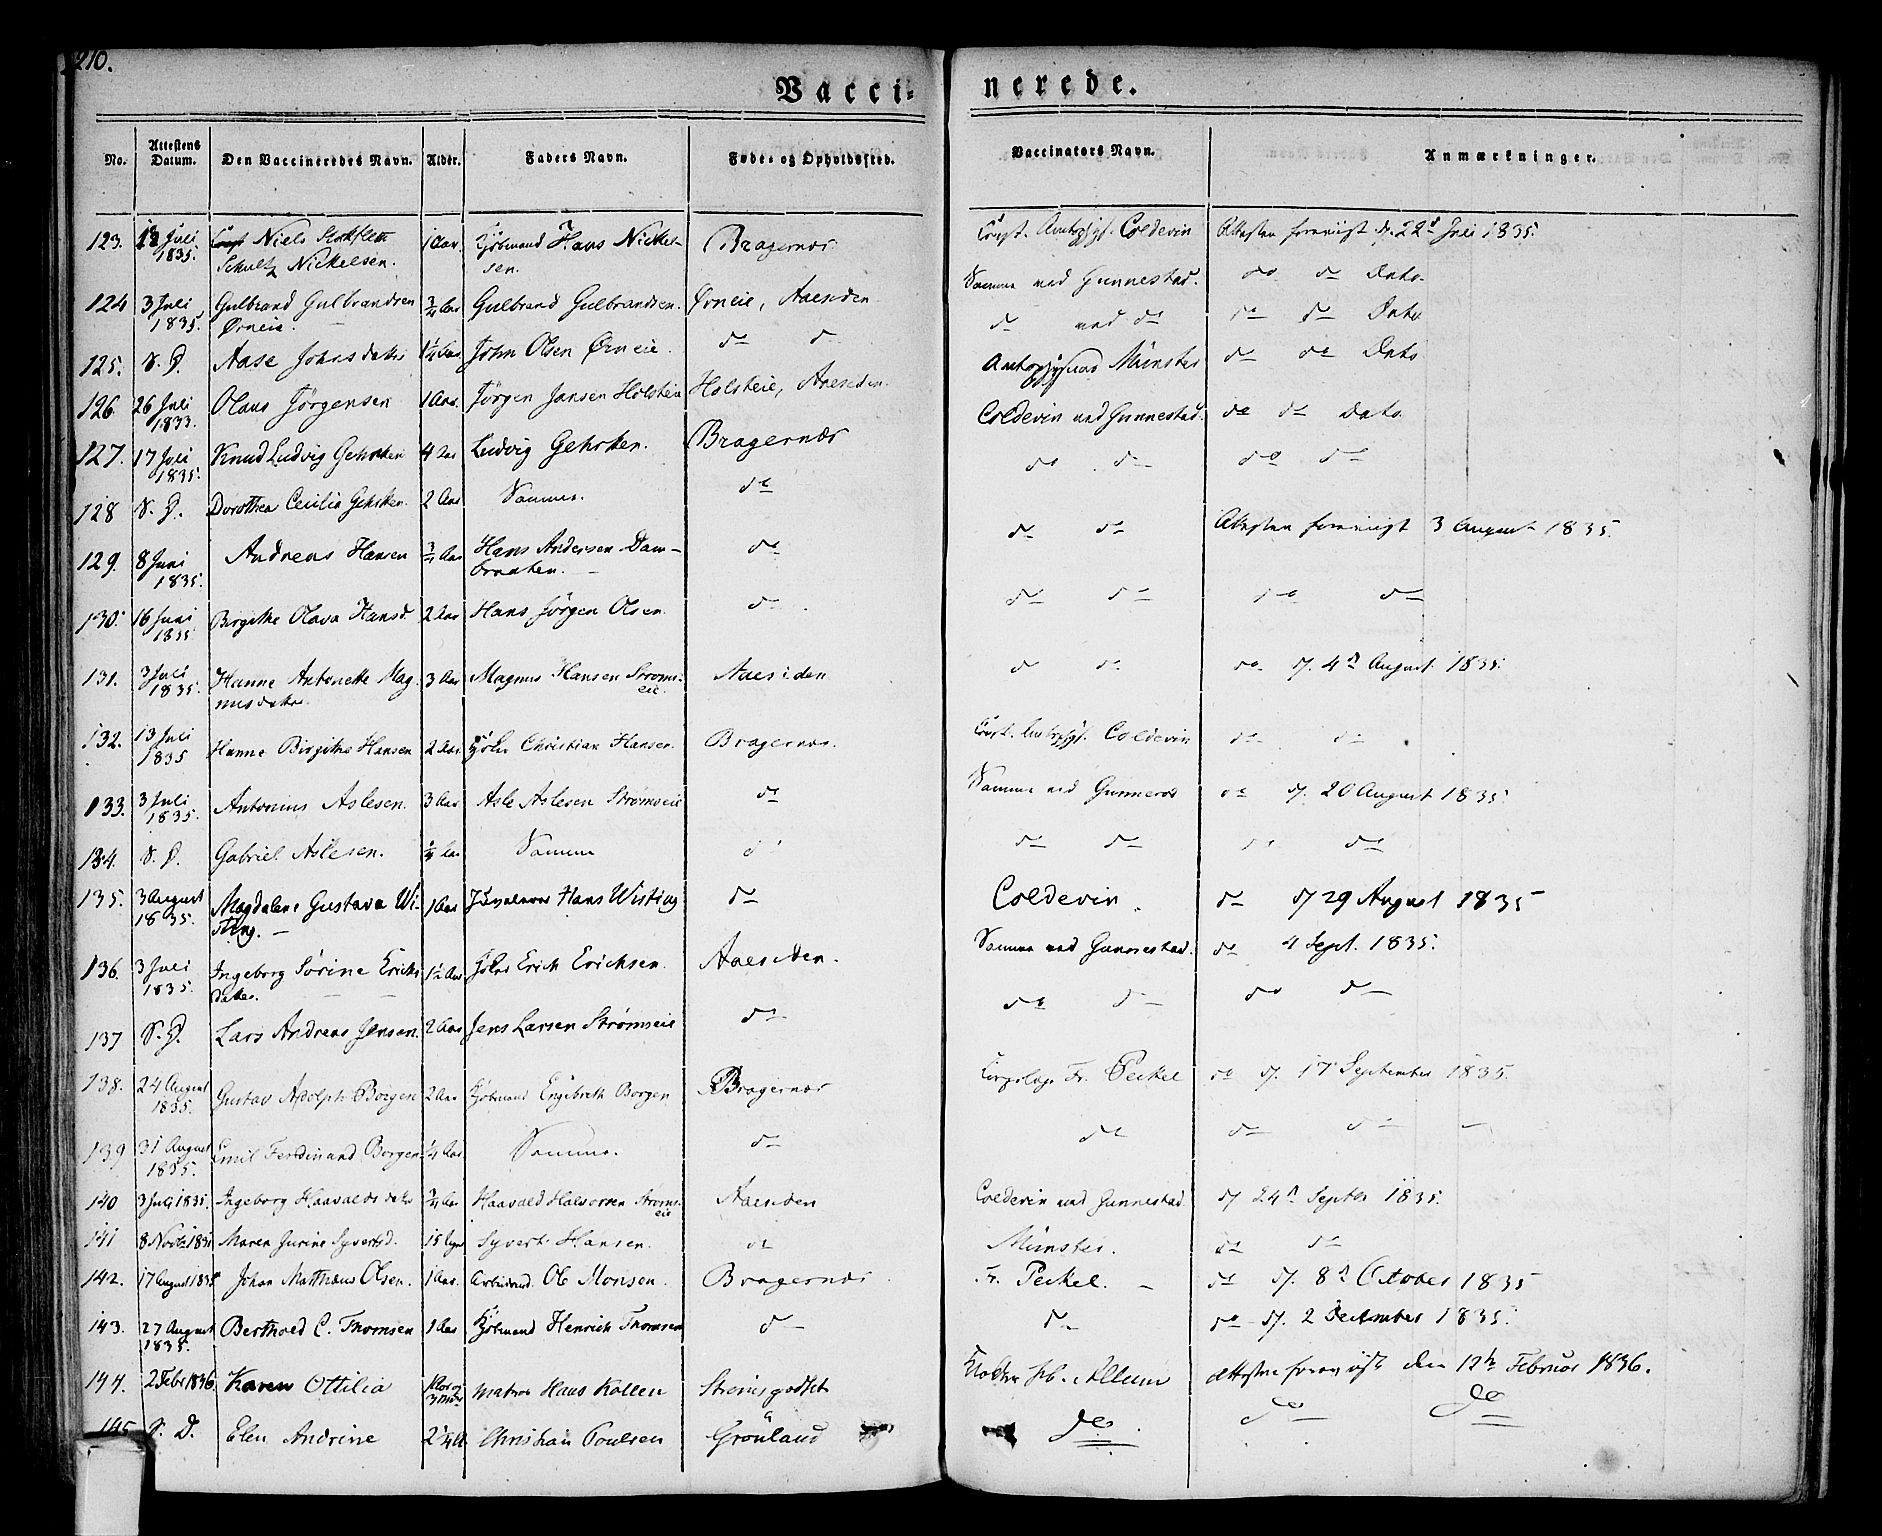 210.
Vacci- nerede.
No. Attestens Datum. Den Vaccineredes Navn. Alder. Faders Navn. Føde- og Opholdssted. Vaccinators Navn. Anmærkninger.
123. 13 Juli 1835. Niels Stockfleth Schultz Nickelsen. 1 Aar. Kjöbmand Hans Nickelsen. Bragernæs Const. Coldevin Attesten foreviist d. 22d Juli 1835.
124 3 Juli 1835. Gulbrand Gulbrandsen Örneie. 3/4 Aar Gulbrand Gulbrandsen. Ørneie, Aaesiden Samme ved Gunnestad. do do Dato
125. S. D. Aase Johnsdatter 1 1/4 Aar John Olsen Ørneie. do do do ved do do do Dato
126. 26 Juli 1833. Olaus Jörgensen 1 Aar. Jörgen Jansen Holsteie Holsteie, Aaesiden. Münster do do Dato
127. 17 Juli 1835. Knud Ludvig Gehrken 4 Aar Ludvig Gehrken. Bragernæs Coldevin ved Gunnestad. do do Dato.
128 S. D. Dorothea Cecilia Gehrken. 2 Aar Samme. do do do do do
129. 8 Juni 1835. Andreas Hansen 3/4 Aar Hans Andersen Dambraaten. do do do Attesten foreviist 3 August 1835.
130. 16 Juni 1835 Birgithe Olava Hansd. 2 Aar Hans Jörgen Olsen. do do do do do
131. 3 Juli 1835. Hanne Antonette Magnusdatter. 3 Aar Magnus Hansen Strömseie. Aaesiden do do do d. 4d August 1835.
132. 13 Juli 1835 Hanne Birgithe Hansen 2 Aar Christian Hansen. Bragernæs. Const. Coldevin do do
133. 3 Juli 1835. Antonius Aslesen. 3 Aar Asle Aslesen Strømseie do Samme ved do d. 20 August 1835.
134. S. D. Gabriel Aslesen. 1/4 Aar Samme do do do do do
135. 3 August 1835. Magdalene Gustava Wisting. 1 Aar Hans Wisting do Coldevin. do d 29 August 1835
136. 3 Juli 1835. Ingeborg Sörine Erichsdatter. 1 1/2 Aar Erich Erichsen. Aaesiden. Samme ved Gunnestad. do 4 Sept. 1835.
137 S. D. Lars Andreas Jensen. 2 Aar Jens Larsen Strømseie do do do do do
138. 24 August 1835. Gustav Adolph Borgen 2 Aar Kjöbmand Engebreth Borgen Bragernæs Fr. Peckel do d. 17 September 1835.
139 31 August 1835. Emil Ferdinand Borgen 1/4 Aar Samme. do do do do
140 3 Juli 1835. Ingeborg Haavaldsdatter 3/4 Aar Haavald Halvorsen Strømseie Aaesiden Coldevin ved Gunnestad. d 24d Septbr 1835.
141 8 Novbr Maren Jurine Syvertsd. Syvert Hansen. do Münster. do do
142. 17 August 1835 Johan Matthæus Olsen. 1 Aar. Ole Monsen. Bragernæs Fr. Peckel. do d. 8d October 1835
143. 27 August 1835. Berthold C. Thomsen 1 Aar Kjöbmand Henrich Thomsen do do do d. 2 December 1835.
144. 2 Febr 1836 Karen Ottilia Matros Hans Kollen Strömsgodset Allum Attesten foreviist den 12te Februar 1836.
145. S. D. Elen Andrine 2 1/4 A. Christian Poulsen Grönland do do do